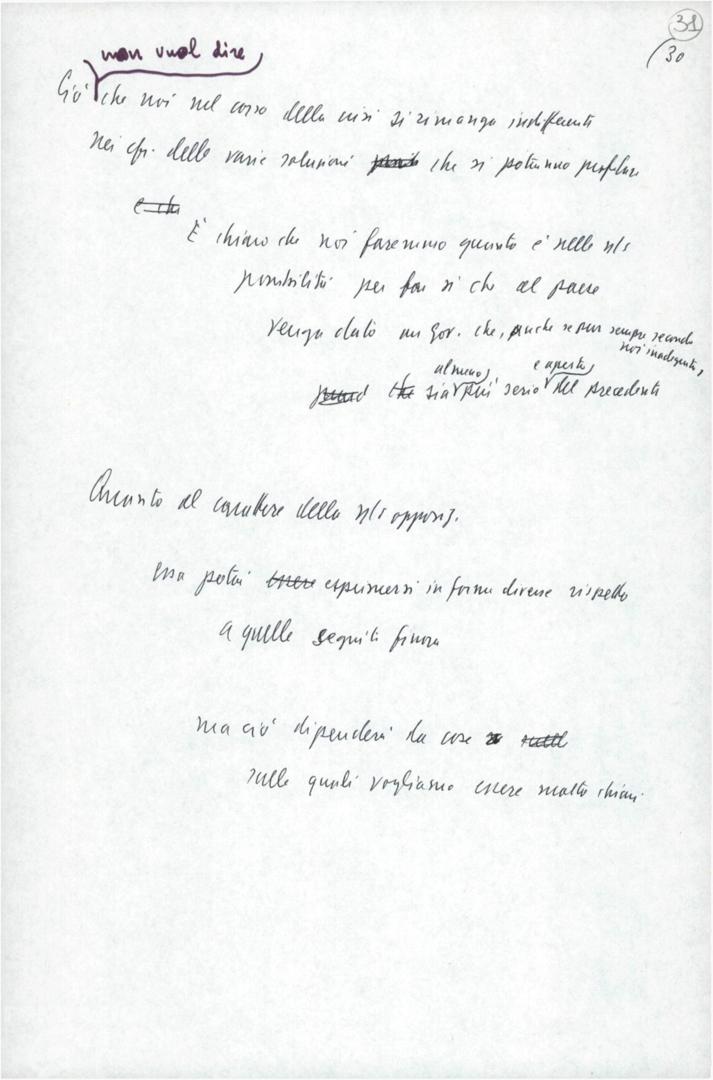 31
30
non vuol dire
Ciò che noi nel corso della crisi si rimanga indifferenti
nei cfr. delle varie soluzioni che si potranno profilare
e che
È chiaro che noi faremo quanto è nelle n/s
possibilità per far sì che al paese
venga dato un Gov. che, anche se pur sempre secondo
noi inadeguato,
almeno e aperto
che sia più serio del precedente
Quanto al carattere della n/s opposiz.
essa potrà essere esprimersi in forme diverse rispetto
a quelle seguiti finora
ma ciò dipenderà da cose
sulle quali vogliamo essere molto chiari.